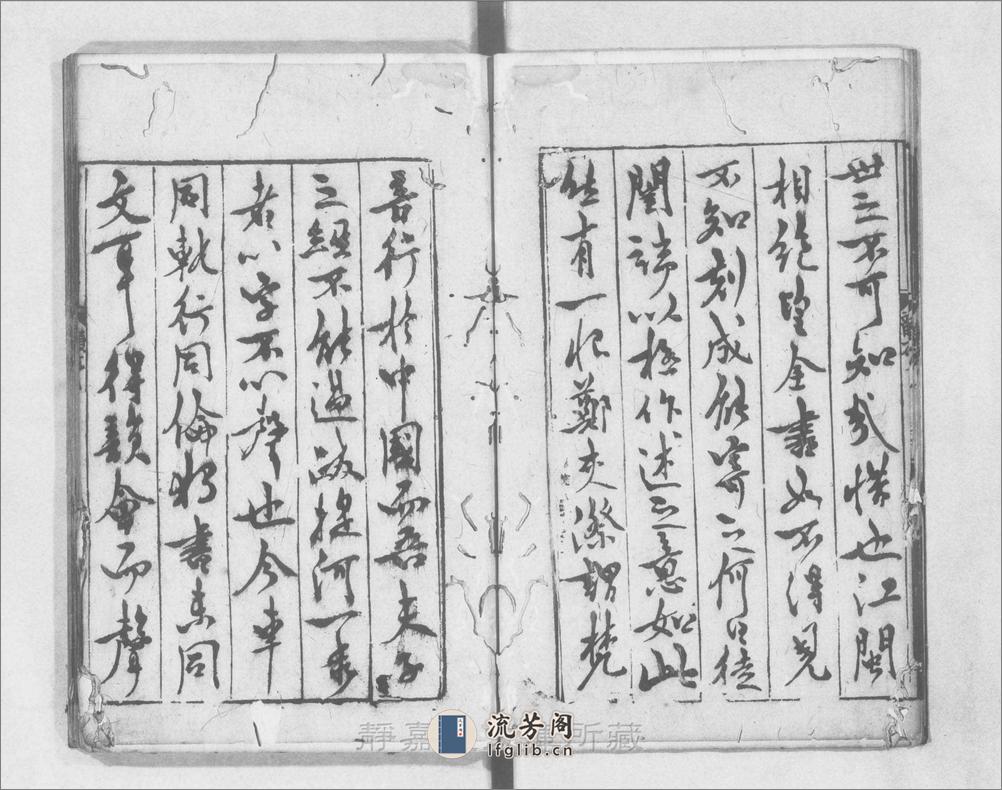 世之不可知哉惜也江閩
相絕望全書如不得見
不知刻成能寄何日
以極作述之意如此
能有一恨鄭夾漈謂梵
音行於中國而吾夫子
之經不能過跋提河一步
者以字不以聲也今車
同軌行同倫將書亦同
文得韻會而聲
靜嘉堂文庫所藏
流芳阁
lfglib.cn